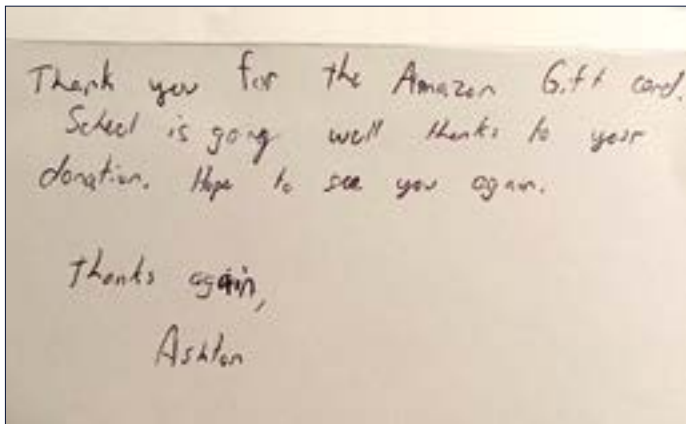 Thank you for the Amazon Gift card.
School is going well thanks to your
donation. Hope to see you again.
Thanks again,
Ashton